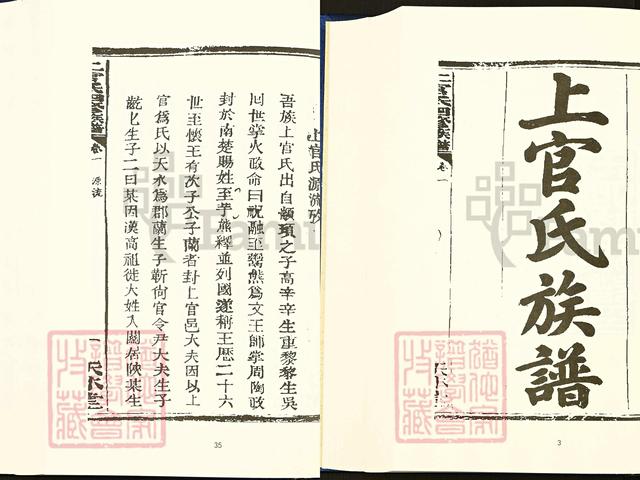 上官氏族譜
上官氏四修族譜
卷一
天水堂
3
上官氏源流攷
吾族上官氏出自顓頊之子高辛辛生重黎黎生吳
回世掌火政命曰祝融至鬻熊為文王師掌周陶政
封於南楚賜姓至芈熊繹並列國遂稱王歷二十六
世至懷王有次子公子蘭者封上官邑大夫因以上
官爲氏以天水爲郡蘭生子靳向官令尹大夫生子
齔匕生子二曰某因漢高祖徙大姓入關居陝某生
上官氏四修族譜
卷一
源流
一
天水堂
35